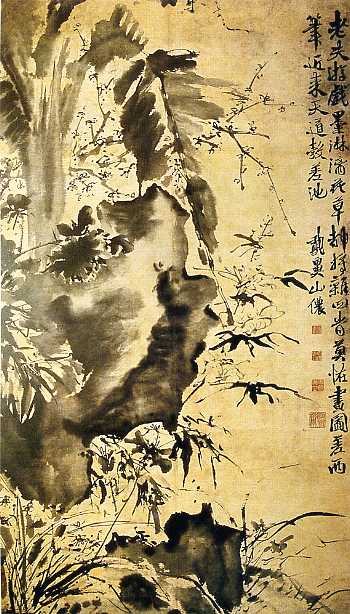 老夫游戲墨淋漓花草都將雜四時莫怪畫圖差兩
筆近來天道彀差池
山儂